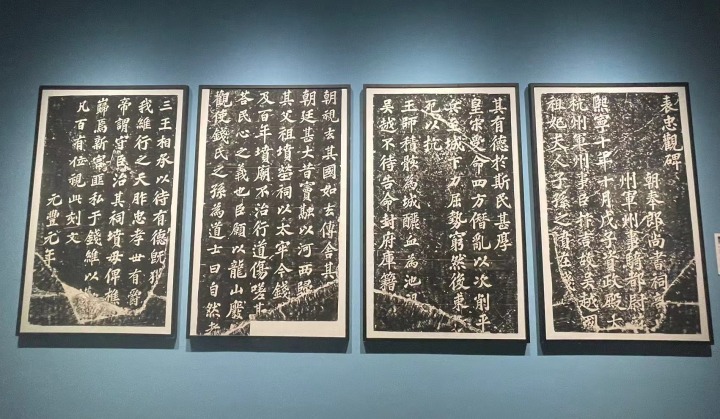 表忠觀碑
朝奉郎尚書祠部
州軍州事騎都尉
熙寧十年十月戊子資政殿大
杭州軍州事臣抃言故吳越國
祖妣夫人子孫之墳在
其有德於斯民甚厚
皇宋受命四方僭亂以次削平
兵至城下力屈勢窮然後束
死以抗
王師積骸為城釃血為池竭
吳越不待告命封府庫籍
朝視去其國如去傳舍其
朝廷其大昔竇融以河西歸
其父祖墳塋祠以太牢今錢
及百年墳廟不治行道傷嗟甚
荅民心之義也臣願以龍山廢
觀使錢氏之孫為道士曰自然者
三王相承以待有德既獲
我維行之天胙忠孝世有爵
帝謂守臣治其祠墳毋俾樵
巋焉新宮匪私于錢維以
凡百有位視此刻文
元豐元年